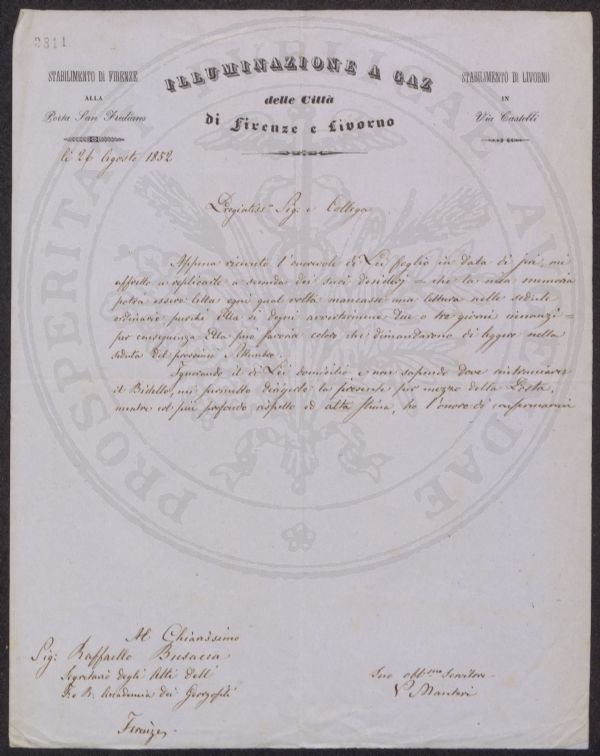 2811
ILLUMINAZIONE A GAZ
delle Città
di Firenze e Livorno
STABILIMENTO DI FIRENZE
ALLA
Porta San Frediano
STABILIMENTO DI LIVORNO
IN
Via Castelli
li 26 Agosto 1852
Pregiatiss.o Sig.e e Collega
Appena ricevuto l'onorevole di Lei foglio in data di jeri, mi
affretto a replicarle a seconda dei suoi desiderj = che la mia memoria
potrà essere letta ogni qual volta mancasse una lettura nelle sedute
ordinarie purchè Ella si degni avvertirmene due o tre giorni innanzi =
per conseguenza Ella può favorir coloro che dimandarono di leggere nella
seduta del prossimo
Ignorando il di Lei domicilio e non sapendo dove rintracciare
il Bidello, mi permetto dirigerle la presente per mezzo della Posta,
mentre col più profondo rispetto ed alta stima, ho l'onore di confermarmi
Al Chiarissimo
Sig: Raffaello Busacca
Segretario degli Atti dell'
I. e R. Accademia dei Georgofili
Firenze
Suo obb.mo Servitore
PROSPERITATI PUBLICAE AUGENDAE